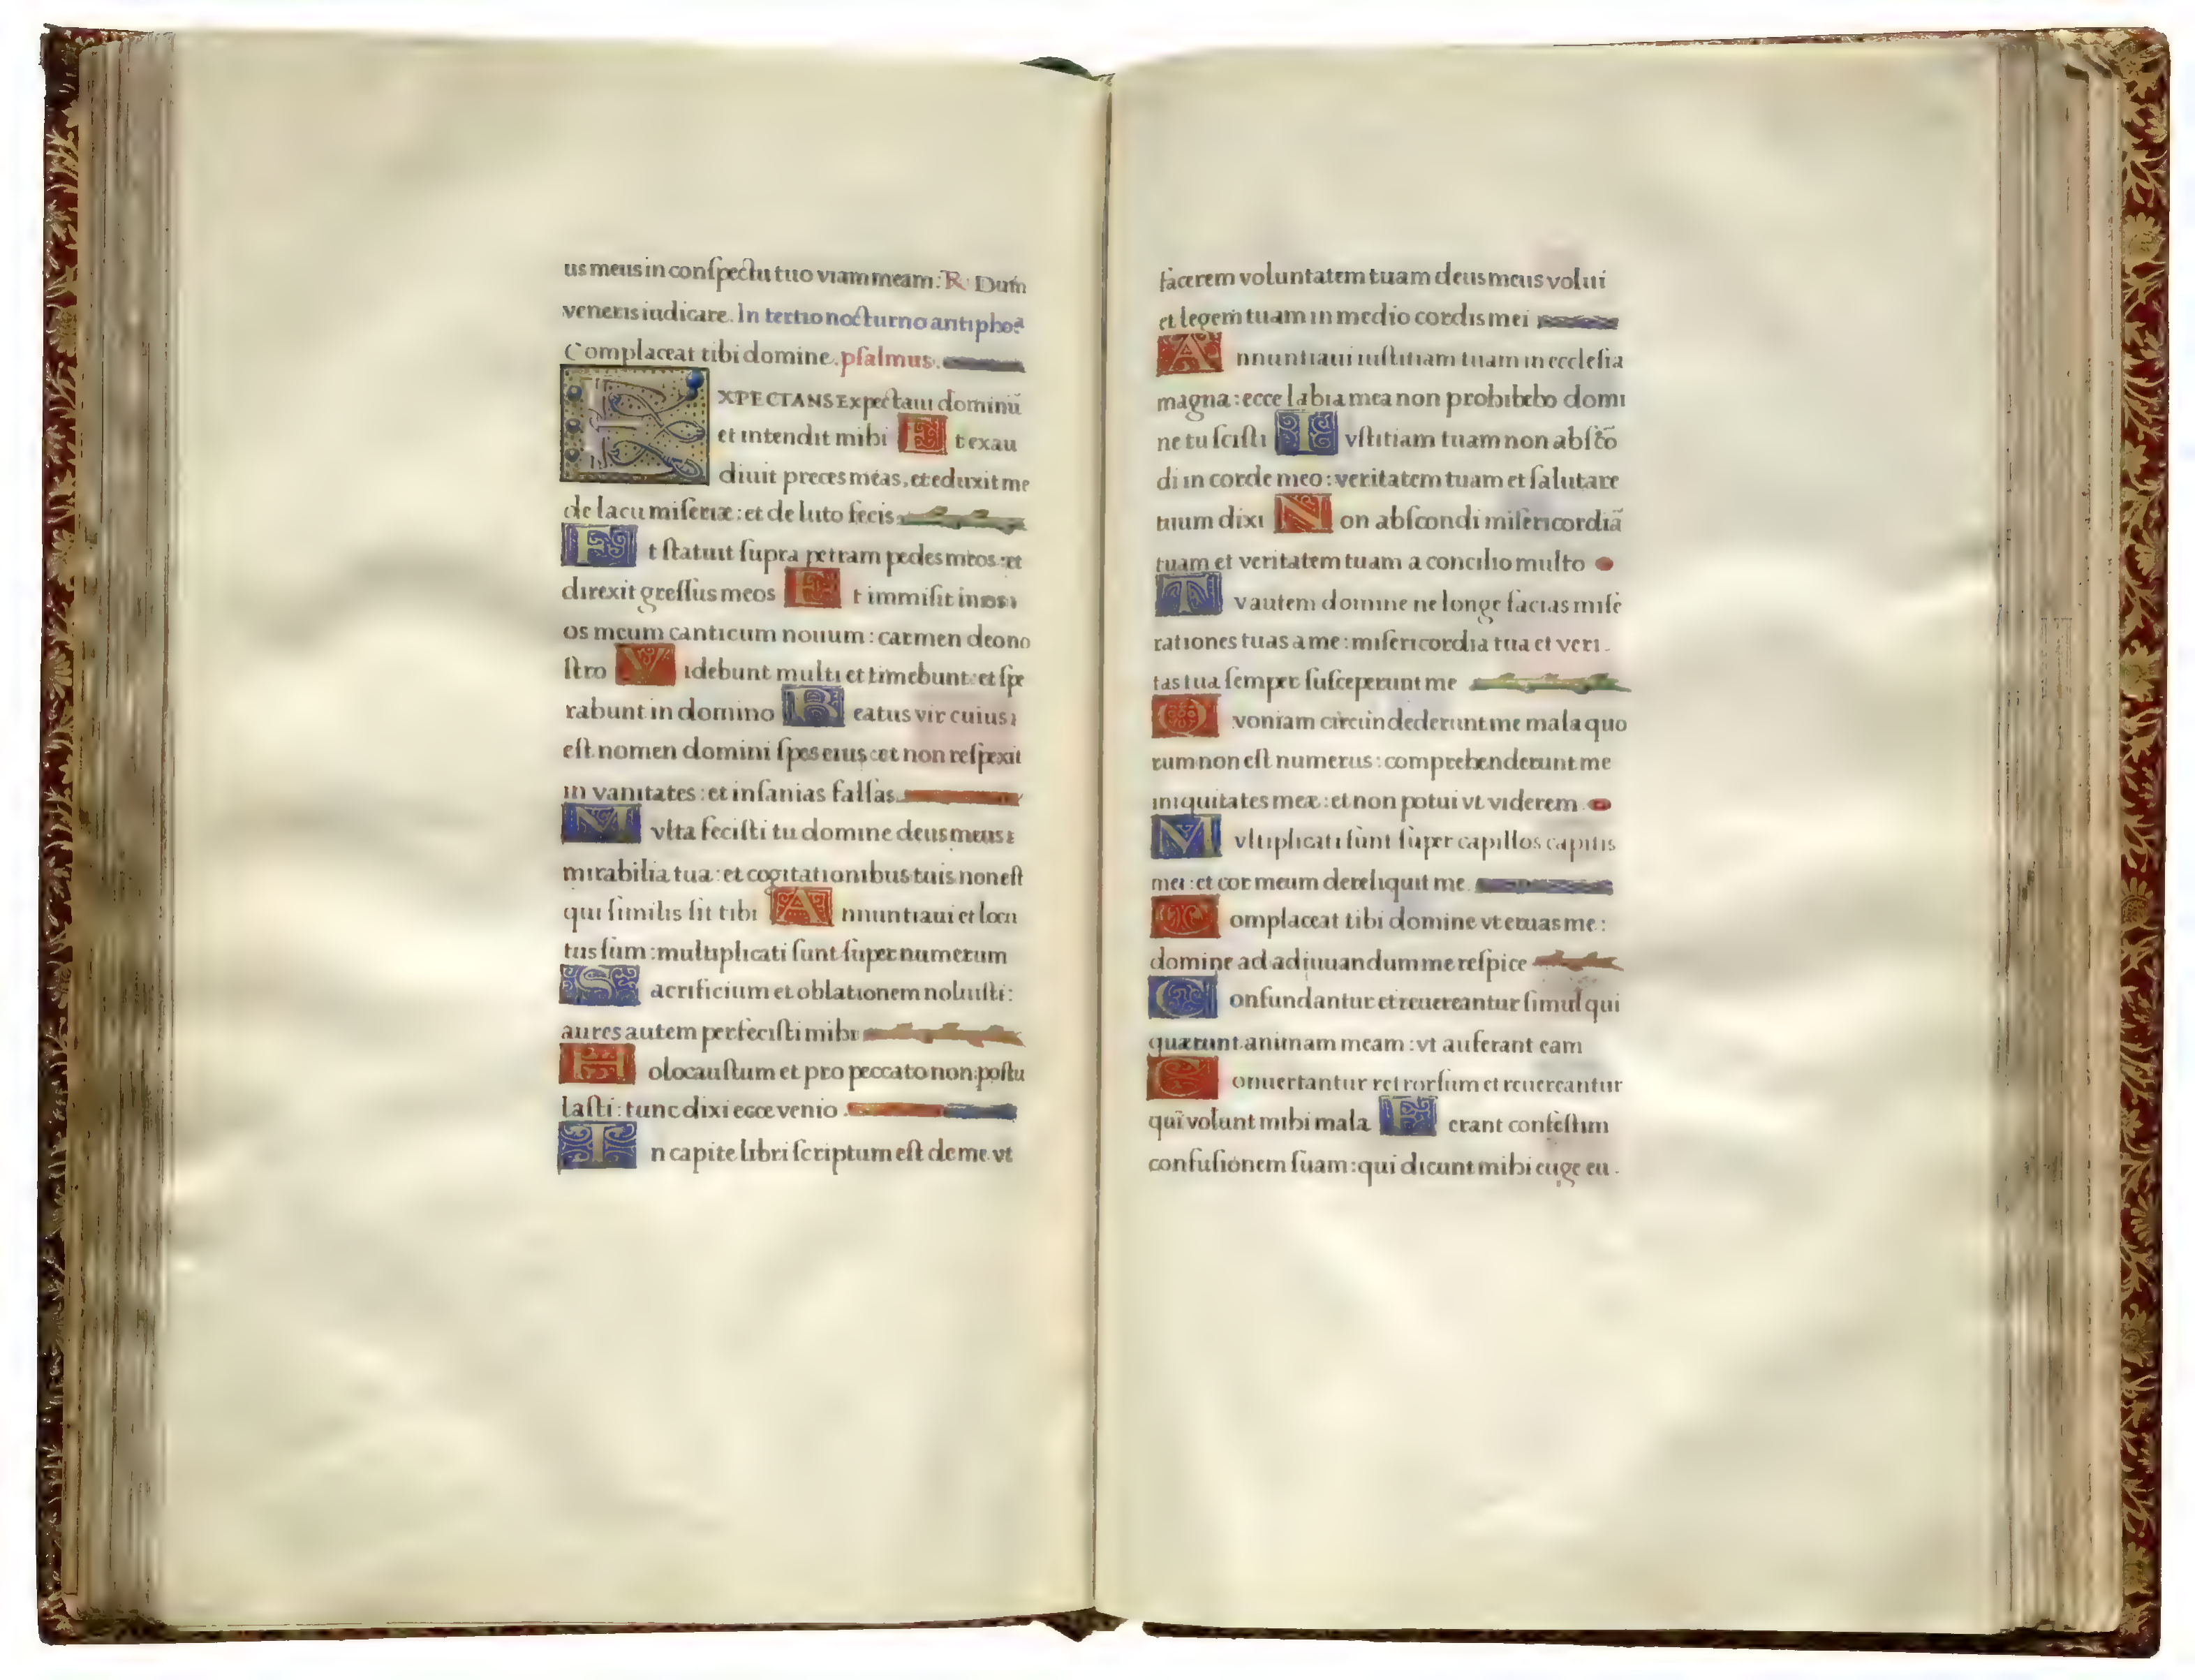 us meus in conſpectu tuo viam meam. ℟ Dum
veneris iudicare. In tertio nocturno antipho&#42863;ª
Complaceat tibi domine. pſalmus.
EXPECTANS expectaui dominū
et intendit mihi Et exau
diuit preces meas, et eduxit me
de lacu miſeriæ: et de luto fecis
Et ſtatuit ſupra petram pedes meos: et
direxit greſſus meos Et immiſit in
os meum canticum nouum: carmen deo no
ſtro Videbunt multi et timebunt: et ſpe
rabunt in domino Beatus vir cuius
eſt nomen domini ſpes eius: et non reſpexit
in vanitates: et inſanias falſas.
Mvlta feciſti tu domine deus meus
mirabilia tua: et cogitationibus tuis non eſt
qui ſimilis ſit tibi Annuntiaui et locu
tus ſum: multiplicati ſunt ſuper numerum
Sacrificium et oblationem noluiſti:
aures autem perfeciſti mihi
Holocauſtum et pro peccato non poſtu
laſti: tunc dixi ecce venio.
In capite libri ſcriptum eſt de me vt
facerem voluntatem tuam deus meus volui
et legem tuam in medio cordis mei
Annuntiaui iuſtitiam tuam in eccleſia
magna: ecce labia mea non prohibebo domi
ne tu ſciſti Ivſtitiam tuam non abſcō
di in corde meo: veritatem tuam et ſalutare
tuum dixi Non abſcondi miſericordiā
tuam et veritatem tuam a concilio multo
Tv autem domine ne longe facias miſe
rationes tuas a me: miſericordia tua et veri-
tas tua ſemper ſuſceperunt me
Qvoniam circundederunt me mala quo
rum non eſt numerus: comprehenderunt me
iniquitates meæ: et non potui vt viderem
Mvltiplicati ſunt ſuper capillos capitis
mei: et cor meum dereliquit me.
Complaceat tibi domine vt eruas me:
domine ad adiuuandum me reſpice
Confundantur et reuereantur ſimul qui
quærunt animam meam: vt auferant eam
Conuertantur retrorſum et reuereantur
qui volunt mihi mala Ferant confeſtim
confuſionem ſuam: qui dicunt mihi euge eu-